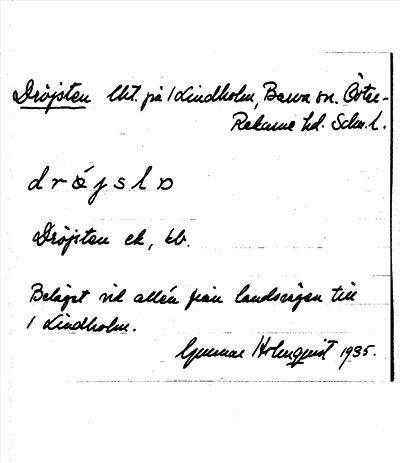 Dröjsten lht. på 1 Lindholm, Barva sn. Öster-
Rekarne hd. Söm. l.
Dröjsten ek, kb.
Beläget vid allén från landsvägen till
1 Lindholm.
Gunnar Holmquist 1935.